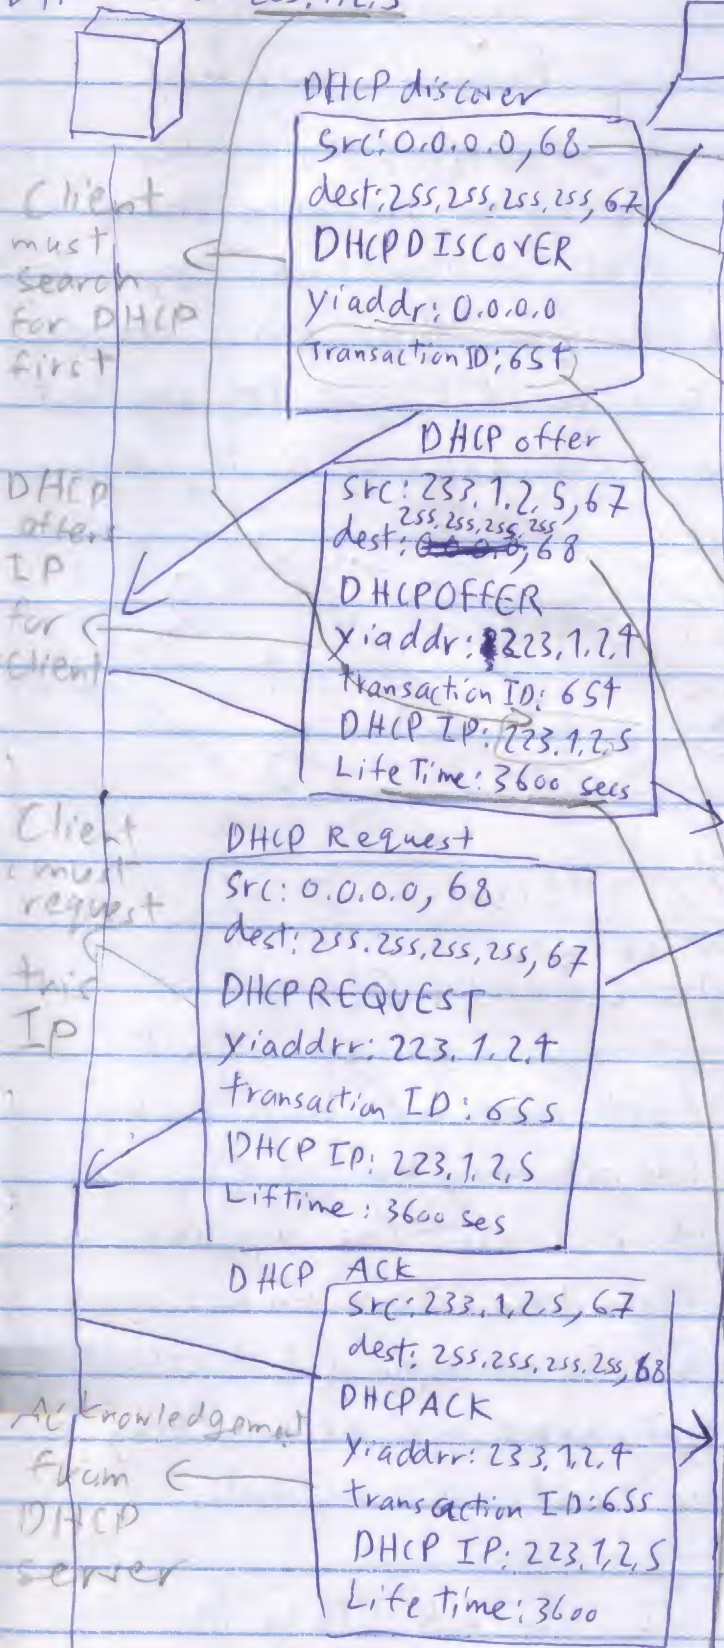 DHCP discover
Src: 0.0.0.0, 68
dest: 255.255.255.255, 67
DHCPDISCOVER
yiaddr: 0.0.0.0
Transaction ID: 654
Client
must
search
for DHCP
first
DHCP offer
Src: 233.1.2.5, 67
255.255.255.255
dest: 0.0.0.0, 68
DHCPOFFER
yiaddr: 223.1.2.4
transaction ID: 654
DHCP IP: 223.1.2.5
Life Time: 3600 secs
DHCP
offers
IP
for
client
DHCP Request
Src: 0.0.0.0, 68
dest: 255.255.255.255, 67
DHCPREQUEST
yiaddrr: 223.1.2.4
transaction ID: 655
DHCP IP: 223.1.2.5
Liftime: 3600 ses
Client
must
request
this
IP
DHCP ACK
Src: 233.1.2.5, 67
dest: 255.255.255.255, 68
DHCPACK
yiaddrr: 233.1.2.4
transaction ID: 655
DHCP IP: 223.1.2.5
Life time: 3600
Acknowledgement
from
DHCP
server